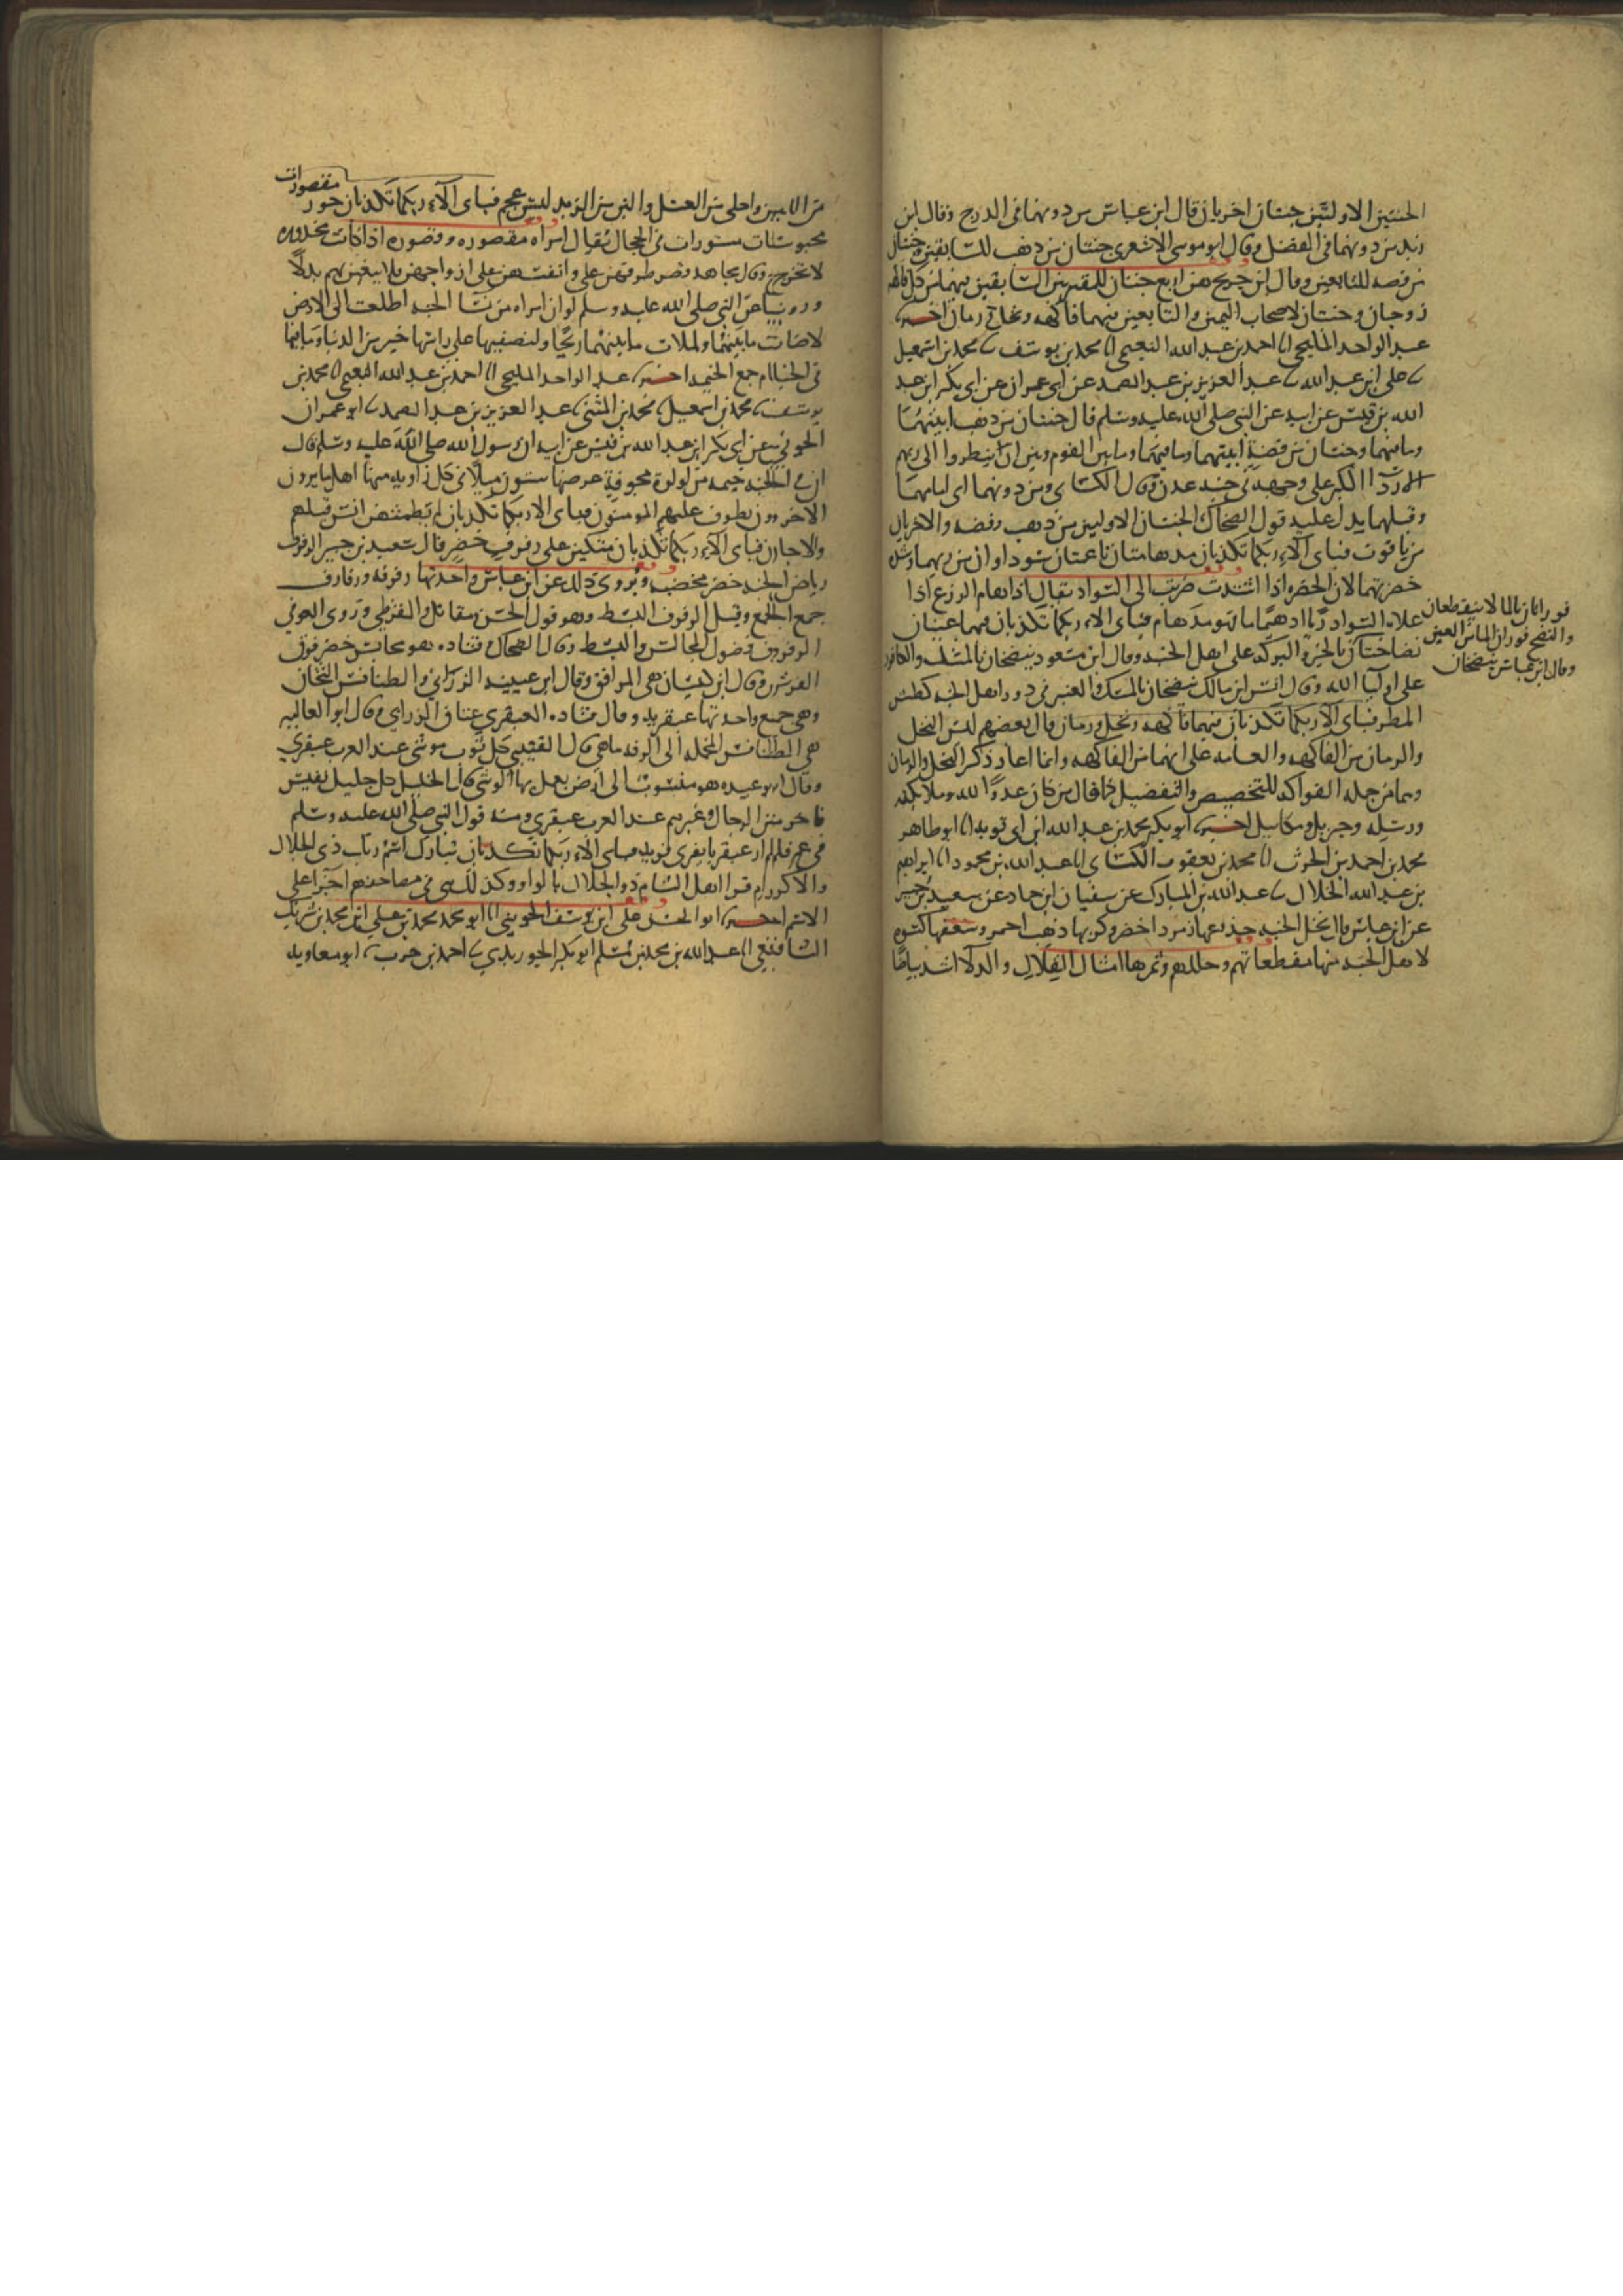 الجنتين الاولتين جنتان اخريان قال ابن عباس من دونهما في الدرج وقال ابن
زيد من دونهما في الفضل وقال ابو موسى الاشعري جنتان من ذهب للسابقين وجنتان
من فضه للتابعين وقال ابن جريج هن اربع جنتان للمقربين السابقين فيهما من كل فاكهه
زوجان وجنتان لاصحاب اليمين والتابعين فيهما فاكهه ونخل ورمان اخبرنا
عبد الواحد المليحي انا احمد بن عبد الله النعيمي انا محمد بن يوسف نا محمد بن اسمعيل
نا علي ابن عبد الله نا عبد العزيز بن عبد الصمد عن ابي عمران عن ابي بكر ابن عبد
الله بن قيس عن ابيه عن النبي صلى الله عليه وسلم قال جنتان من ذهب ابنيتهما
وما فيهما وجنتان من فضة ابنيتهما وما فيهما وما بين القوم وبين ان ينظروا الى ربهم
الا رداا الكبر على وجهه في جنه عدن وقال الكسائي ومن دونهما اي امامهما
وقبلهما يدل عليه قول الضحاك الجنتان الاوليين من ذهب وفضه والاخريان
من ياقوت فباي آلاء ربكما تكذبان مدهامتان ناعمتان سوداوان من ريهما وشده
خضرتهما لان الخضره اذا اشتدت ضربت الى السواد يقال اذا دهام الزرع اذا
علاه السواد ريا ادهيماما فهو مدهام فباي الاء ربكما تكذبان فيهما عينان
نضاختان بالخير والبركه على اهل الجنه وقال ابن مسعود ينضخان بالمسك والكافور
على اوليا الله وقال انس ابن مالك ينضخان بالمسك والعنبر في دور اهل الجنه كطش
المطر فباي الاء ربكما تكذبان فيهما فاكهه ونخل ورمان قال بعضهم ليس النخل
والرمان من الفاكهه والعامه على انهما من الفاكهه وانما اعاد ذكر النخل والرمان
وهما من جمله الفواكه للتخصيص والتفضيل كما قال من كان عدوا لله وملائكته
ورسله وجبريل وميكايل اخبرنا ابو بكر محمد بن عبد الله ابن ابي توبه انا ابو طاهر
محمد بن احمد بن الحرث انا محمد بن يعقوب الكسائي انا عبد الله بن محمود انا ابراهيم
بن عبد الله الخلال نا عبد الله بن المبارك عن سفيان ابن حماد عن سعيد بن جبير
عن ابن عباس قال نخل الجنه جذوعها زمرد اخضر وكربها ذهب احمر وسعفها كسوه
لاهل الجنه منها مقطعاتهم وحللهم وثمرها امثال القلال والدلاا اشد بياضا
فورانان بالما لا ينقطعان
والنضخ فوران الما من العين
وقال ابن عباس ينضخان
من اللبن واحلى من العسل والين من الزبد ليس عجم فباي الآء ربكما تكذبان حور مقصورات
محبوسات مستورات في الحجال يقال امراه مقصوره وقصوره اذا كانت مخدره
لا تخرج وقال مجاهد قصر طرفهن على وانفسهن على ازواجهن فلا يبغين بهم بدلا
وروينا عن النبي صلى الله عليه وسلم لو ان امراه من نسا الجنه اطلعت الى الارض
لاضات ما بينهما ولملات ما بينهما ريحا ولنصيفها على راسها خير من الدنيا وما فيها
في الخيام جمع الخيمه اخبرنا عبد الواحد المليحي انا احمد بن عبد الله النعيمي انا محمد بن
يوسف نا محمد بن اسمعيل نا محمد بن المثنى نا عبد العزيز بن عبد الصمد نا ابو عمران
الجوني عن ابي بكر ابن عبد الله بن قيس عن ابيه ان رسول الله صلى الله عليه وسلم قال
ان في الجنه خيمه من لولوة مجوفة عرضها ستون ميلا في كل زاويه منها اهل ما يرون
الاخرون يطوف عليهم المومنون فباي الاء ربكما تكذبان لم يطمثهن انس قبلهم
ولا جان فباي الآء ربكما تكذبان متكين على رفرف خضر قال سعيد بن جبير الرفرف
رياض الجنه خضر مخضبه ويروى ذلك عن ابن عباس واحدتها رفرفه ورفارف
جمع الجمع وقيل الرفرف البسط وهو قول الحسن ومقاتل والقرظي وروى العوفي
الرفرف فضول المجالس والبسط وقال الضحاك وقتاده هو مجالس خضر فوق
الفرش وقال ابن كيسان هي المرافق وقال ابن عيينه الزرابي والطنافس الثخان
وهي جمع واحدتها عبقريه وقال قتاده العبقري عتاق الزرابي وقال ابو العاليه
هي الطنافس المخمله الى الرقه ما هي قال القتيبي كل ثوب موشى عند العرب عبقري
وقال ابو عبيده هو منسوب الى ارض يعمل بها الوشي قال الخليل كل جليل نفيس
فاخر من الرجال وغيرهم عند العرب عبقري ومنه قول النبي صلى الله عليه وسلم
في عمر فلم ار عبقريا يفري فريه فباي الاء ربكما تكذبان تبارك اسم ربك ذي الجلال
والاكرام قرا اهل الشام ذو الجلال بالواو وكذلك هي في مصاحفهم اجرا على
الاسم اخبرنا ابو الحسن علي ابن يوسف الجويني انا ابو محمد محمد بن علي ابن محمد بن شريك
الشافعي انا عبد الله بن محمد بن مسلم ابو بكر الجوربدي نا احمد بن حرب نا ابو معاويه